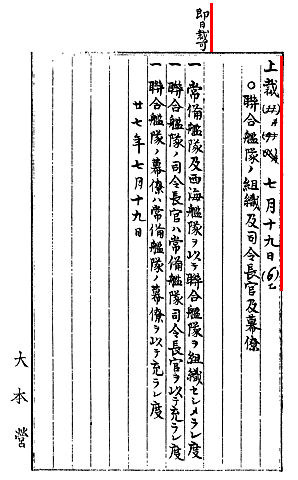 即日裁可
上裁 七月十九日(6)
○聯合艦隊ノ組織及司令長官及幕僚
一 常備艦隊及西海艦隊ヲ以テ聯合艦隊ヲ組織セシメラレ度
一 聯合艦隊ノ司令長官ハ常備艦隊司令長官ヲ以テ充ラレ度
一 聯合艦隊ノ幕僚ハ常備艦隊ノ幕僚ヲ以テ充ラレ度
廿七年七月十九日
大本営